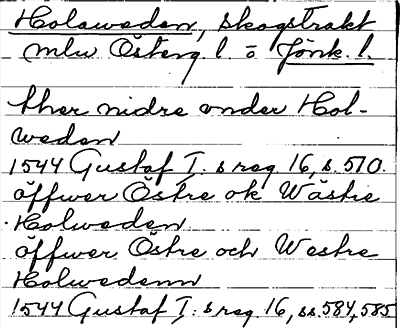 Holaweden, skogstrakt
mlw Österg. l. o Jönk. l.
ther nidre onder Hol-
weden
1544 Gustaf I:s reg 16, s. 510.
öffwer Östre ok Wästre
Holweden
öffwer Östre och Westre
Holwedenn
1544 Gustaf I:s reg. 16, ss. 584, 585